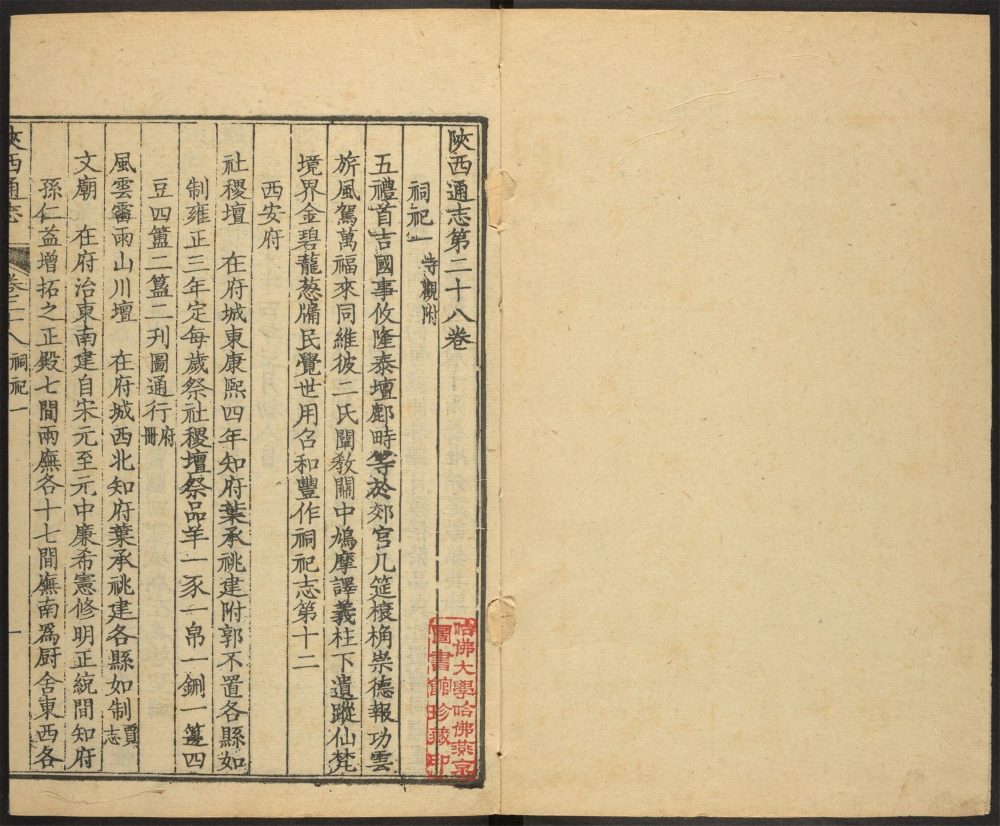 陝西通志第二十八卷
祠祀一 寺觀附
五禮首吉國事攸隆泰壇鄜畤等於郊宮几筵榱桷崇德報功雲
旂風駕萬福來同維彼二氏闡敎關中鳩摩譯義柱下遺蹤仙梵
境界金碧龍葱牖民覺世用召和豐作祠祀志第十二
西安府
社稷壇 在府城東康熙四年知府葉承祧建附郭不置各縣如
制雍正三年定每歲祭社稷壇祭品羊一豕一帛一鉶一籩四
豆四簠二簋二刋圖通行 府冊
風雲雷雨山川壇 在府城西北知府葉承祧建各縣如制 賈志
文廟 在府治東南建自宋元至元中廉希憲修明正統間知府
孫仁益增拓之正殿七間兩廡各十七間廡南爲厨舍東西各
陝西通志 卷二十八 祠祀一 一
哈佛大學哈佛燕京
圖書館珍藏印